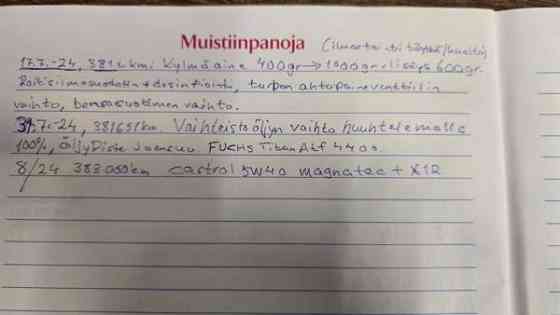 Muistiinpanoja (ilmastointi täyttö/huolto)
17.7.-24, 381 tkm: Kylmäaine 400gr → 1000gr. lisäys 600gr.
Raitisilmasuodatin + desinfiointi, turbon ahtopaineventtiilin
vaihto, bensasuodattimen vaihto.
31.7.-24, 381651km. Vaihteistoöljyn vaihto huuhtelemalla
100%, ÖljyDiste Joensuu. FUCHS Titan Atf 4400.
8/24 383 000km castrol 5W40 magnatec +